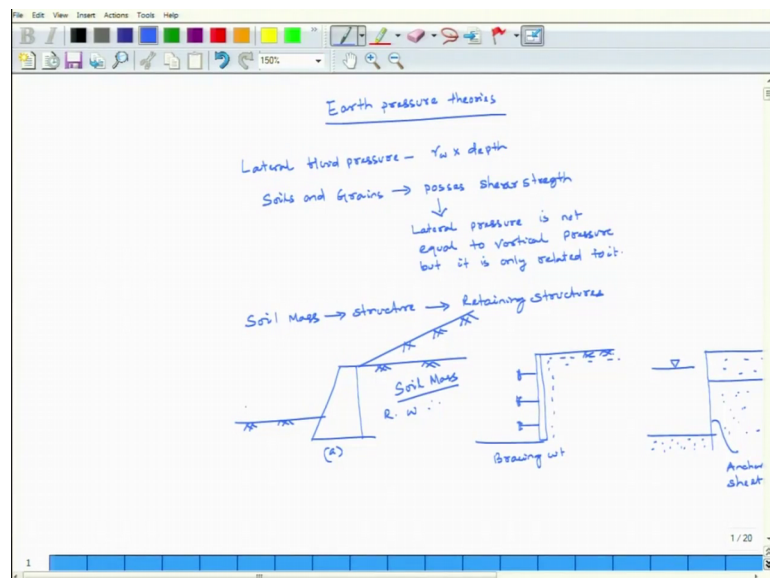 File Edit View Insert Actions Tools Help
B I
150%
Earth pressure theories
Lateral fluid pressure - γw x depth
Soils and Grains → posses shear stregth
Lateral pressure is not
equal to vertical pressure
but it is only related to it.
Soil Mass → structure → Retaining structures
Soil Mass
R. W
(a)
Bracing wt
Anchor
sheet
1 / 20
1